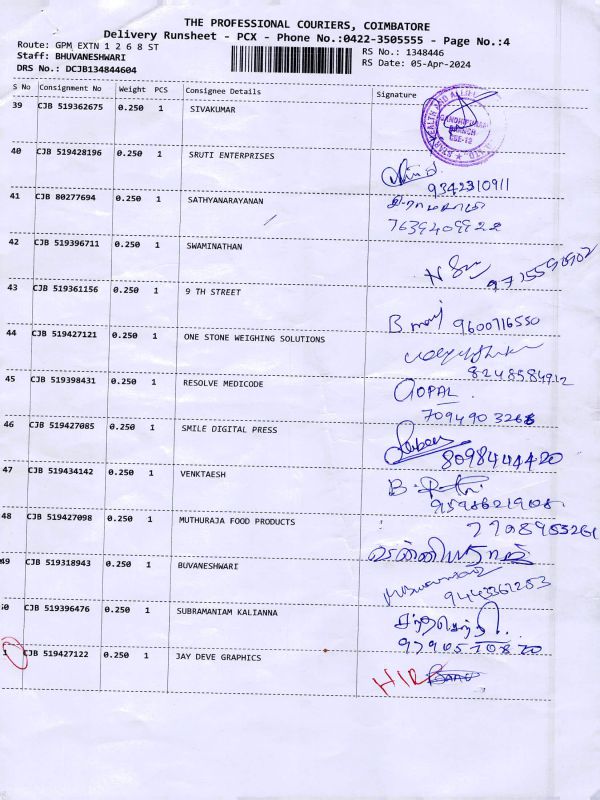 THE PROFESSIONAL COURIERS, COIMBATORE
Delivery Runsheet - PCX - Phone No.:0422-3505555 - Page No.:4
Route: GPM EXTN 1 2 6 8 ST
RS No.: 1348446
Staff: BHUVANESHWARI
RS Date: 05-Apr-2024
DRS No.: DCJB134844604
S No Consignment No Weight PCS Consignee Details Signature
39 CJB 519362675 0.250 1 SIVAKUMAR
GANDHIPURAM
BRANCH
CBE-12
40 CJB 519428196 0.250 1 SRUTI ENTERPRISES
9342310911
41 CJB 80277694 0.250 1 SATHYANARAYANAN
7639409922
42 CJB 519396711 0.250 1 SWAMINATHAN
43 CJB 519361156 0.250 1 9 TH STREET
B 9600716550
44 CJB 519427121 0.250 1 ONE STONE WEIGHING SOLUTIONS
8248584912
45 CJB 519398431 0.250 1 RESOLVE MEDICODE
GOPAL
7094903268
46 CJB 519427085 0.250 1 SMILE DIGITAL PRESS
8098444420
47 CJB 519434142 0.250 1 VENKTAESH
48 CJB 519427098 0.250 1 MUTHURAJA FOOD PRODUCTS
49 CJB 519318943 0.250 1 BUVANESHWARI
9443362253
50 CJB 519396476 0.250 1 SUBRAMANIAM KALIANNA
CJB 519427122 0.250 1 JAY DEVE GRAPHICS